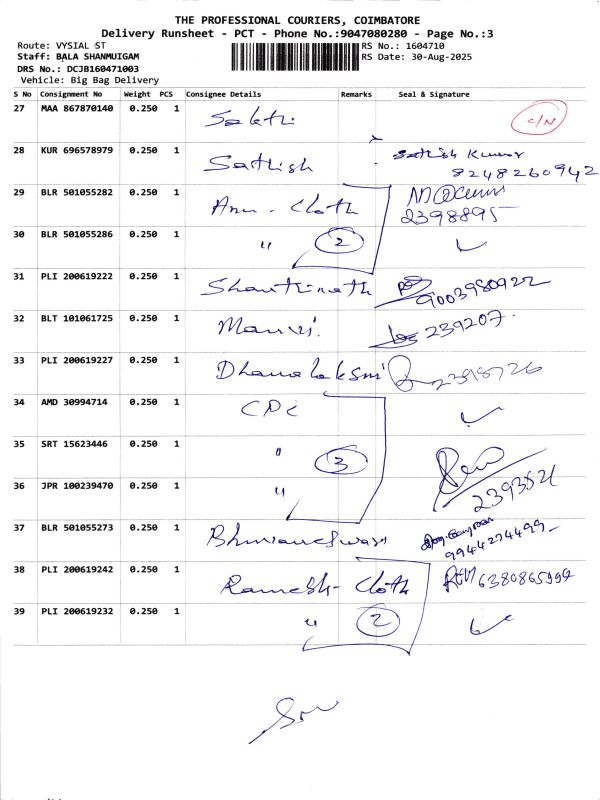 THE PROFESSIONAL COURIERS, COIMBATORE
Delivery Runsheet - PCT - Phone No.:9047080280 - Page No.:3
Route: VYSIAL ST
RS No.: 1604710
Staff: BALA SHANMUIGAM
RS Date: 30-Aug-2025
DRS No.: DCJB160471003
Vehicle: Big Bag Delivery
S No Consignment No Weight PCS Consignee Details Remarks Seal & Signature
27 MAA 867870140 0.250 1 Sakthi C/N
28 KUR 696578979 0.250 1 Sathish Sathish Kumar
8248260942
29 BLR 501055282 0.250 1 Anu. Cloth
2398895
30 BLR 501055286 0.250 1 " 2
31 PLI 200619222 0.250 1 Shanthinath 9003980922
32 BLT 101061725 0.250 1 239207
33 PLI 200619227 0.250 1 Dhanalaksmi
34 AMD 30994714 0.250 1 CPC
35 SRT 15623446 0.250 1 " 3
36 JPR 100239470 0.250 1 "
2393521
37 BLR 501055273 0.250 1 Bhuvaneshwari
9944274499
38 PLI 200619242 0.250 1 Ramesh- Cloth
39 PLI 200619232 0.250 1 " 2